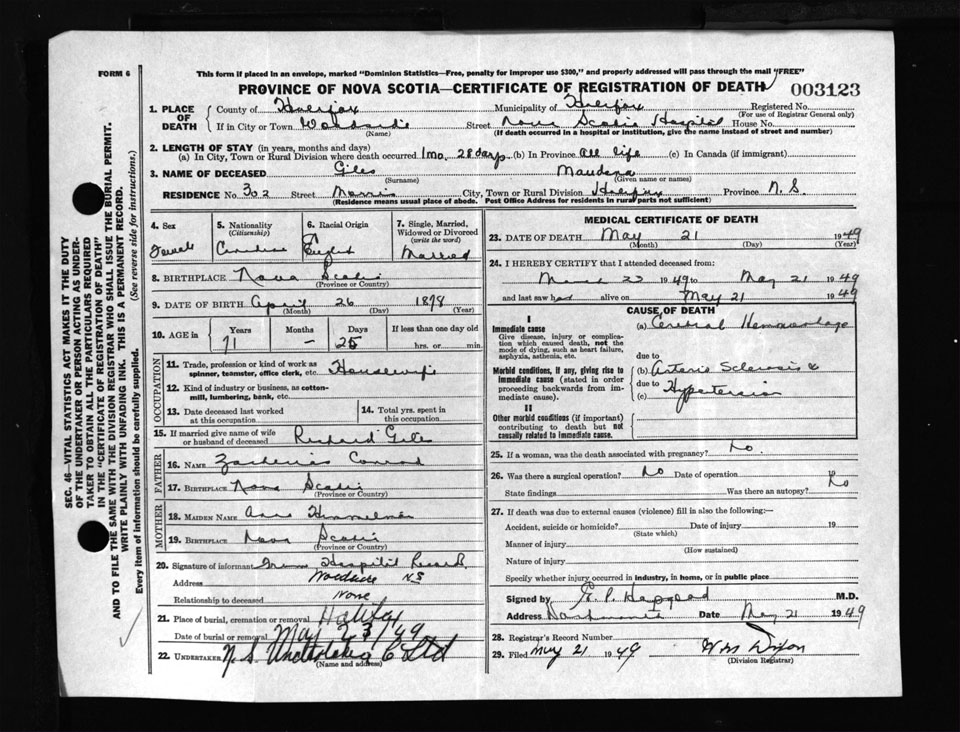 FORM 6
This form if placed in an envelope, marked "Dominion Statistics—Free, penalty for improper use $300," and properly addressed will pass through the mail "FREE"
PROVINCE OF NOVA SCOTIA—CERTIFICATE OF REGISTRATION OF DEATH
003123
1. PLACE OF DEATH
County of Halifax Municipality of Halifax Registered No.
(For use of Registrar General only)
If in City or Town Woodside Street Nova Scotia Hospital House No.
(Name) (If death occurred in a hospital or institution, give the name instead of street and number)
2. LENGTH OF STAY (in years, months and days)
(a) In City, Town or Rural Division where death occurred 1 mo. 28 days (b) In Province all life (c) In Canada (if immigrant)
3. NAME OF DECEASED Giles
(Surname) (Given name or names)
RESIDENCE No. 302 Street Morris City, Town or Rural Division Halifax Province N.S.
(Residence means usual place of abode. Post Office Address for residents in rural parts not sufficient)
4. Sex Female
5. Nationality (Citizenship) Canadian
6. Racial Origin English
7. Single, Married, Widowed or Divorced (write the word) Married
8. BIRTHPLACE Nova Scotia
(Province or Country)
9. DATE OF BIRTH April 26 1878
(Month) (Day) (Year)
10. AGE in Years Months Days If less than one day old
71 – 25 hrs. or min.
OCCUPATION
11. Trade, profession or kind of work as spinner, teamster, office clerk, etc. Housewife
12. Kind of industry or business, as cotton-mill, lumbering, bank, etc.
13. Date deceased last worked at this occupation
14. Total yrs. spent in this occupation
15. If married give name of wife or husband of deceased Richard Giles
FATHER
16. NAME Conrad
17. BIRTHPLACE Nova Scotia
(Province or Country)
MOTHER
18. MAIDEN NAME Himmelman
19. BIRTHPLACE Nova Scotia
(Province or Country)
20. Signature of informant From Hospital Records
Address Woodside N.S
Relationship to deceased None
21. Place of burial, cremation or removal Halifax
Date of burial or removal May 23/49
22. UNDERTAKER N.S. Undertaking C Ltd
(Name and address)
MEDICAL CERTIFICATE OF DEATH
23. DATE OF DEATH May 21 1949
(Month) (Day) (Year)
24. I HEREBY CERTIFY that I attended deceased from:
March 23 1949 to May 21 1949
and last saw her alive on May 21 1949
CAUSE OF DEATH
I
Immediate cause
Give disease, injury or complication which caused death, not the mode of dying, such as heart failure, asphyxia, asthenia, etc.
(a) Cerebral Hemorrhage
due to
Morbid conditions, if any, giving rise to immediate cause (stated in order proceeding backwards from immediate cause).
(b) Arterio Sclerosis &
due to
(c) Hypertension
II
Other morbid conditions (if important) contributing to death but not causally related to immediate cause.
25. If a woman, was the death associated with pregnancy? No
26. Was there a surgical operation? No Date of operation 19
State findings Was there an autopsy? No
27. If death was due to external causes (violence) fill in also the following:—
Accident, suicide or homicide? Date of injury 19
(State which)
Manner of injury
(How sustained)
Nature of injury
Specify whether injury occurred in industry, in home, or in public place
Signed by M.D.
Address Dartmouth Date May 21 1949
28. Registrar's Record Number
29. Filed May 21 1949 W M Dixon
(Division Registrar)
SEC. 46—VITAL STATISTICS ACT MAKES IT THE DUTY
OF THE UNDERTAKER OR PERSON ACTING AS UNDERTAKER TO OBTAIN ALL THE PARTICULARS REQUIRED
IN THE "CERTIFICATE OF REGISTRATION OF DEATH"
AND TO FILE THE SAME WITH THE DIVISION REGISTRAR WHO SHALL ISSUE THE BURIAL PERMIT.
WRITE PLAINLY WITH UNFADING INK. THIS IS A PERMANENT RECORD.
Every item of information should be carefully supplied. (See reverse side for instructions.)